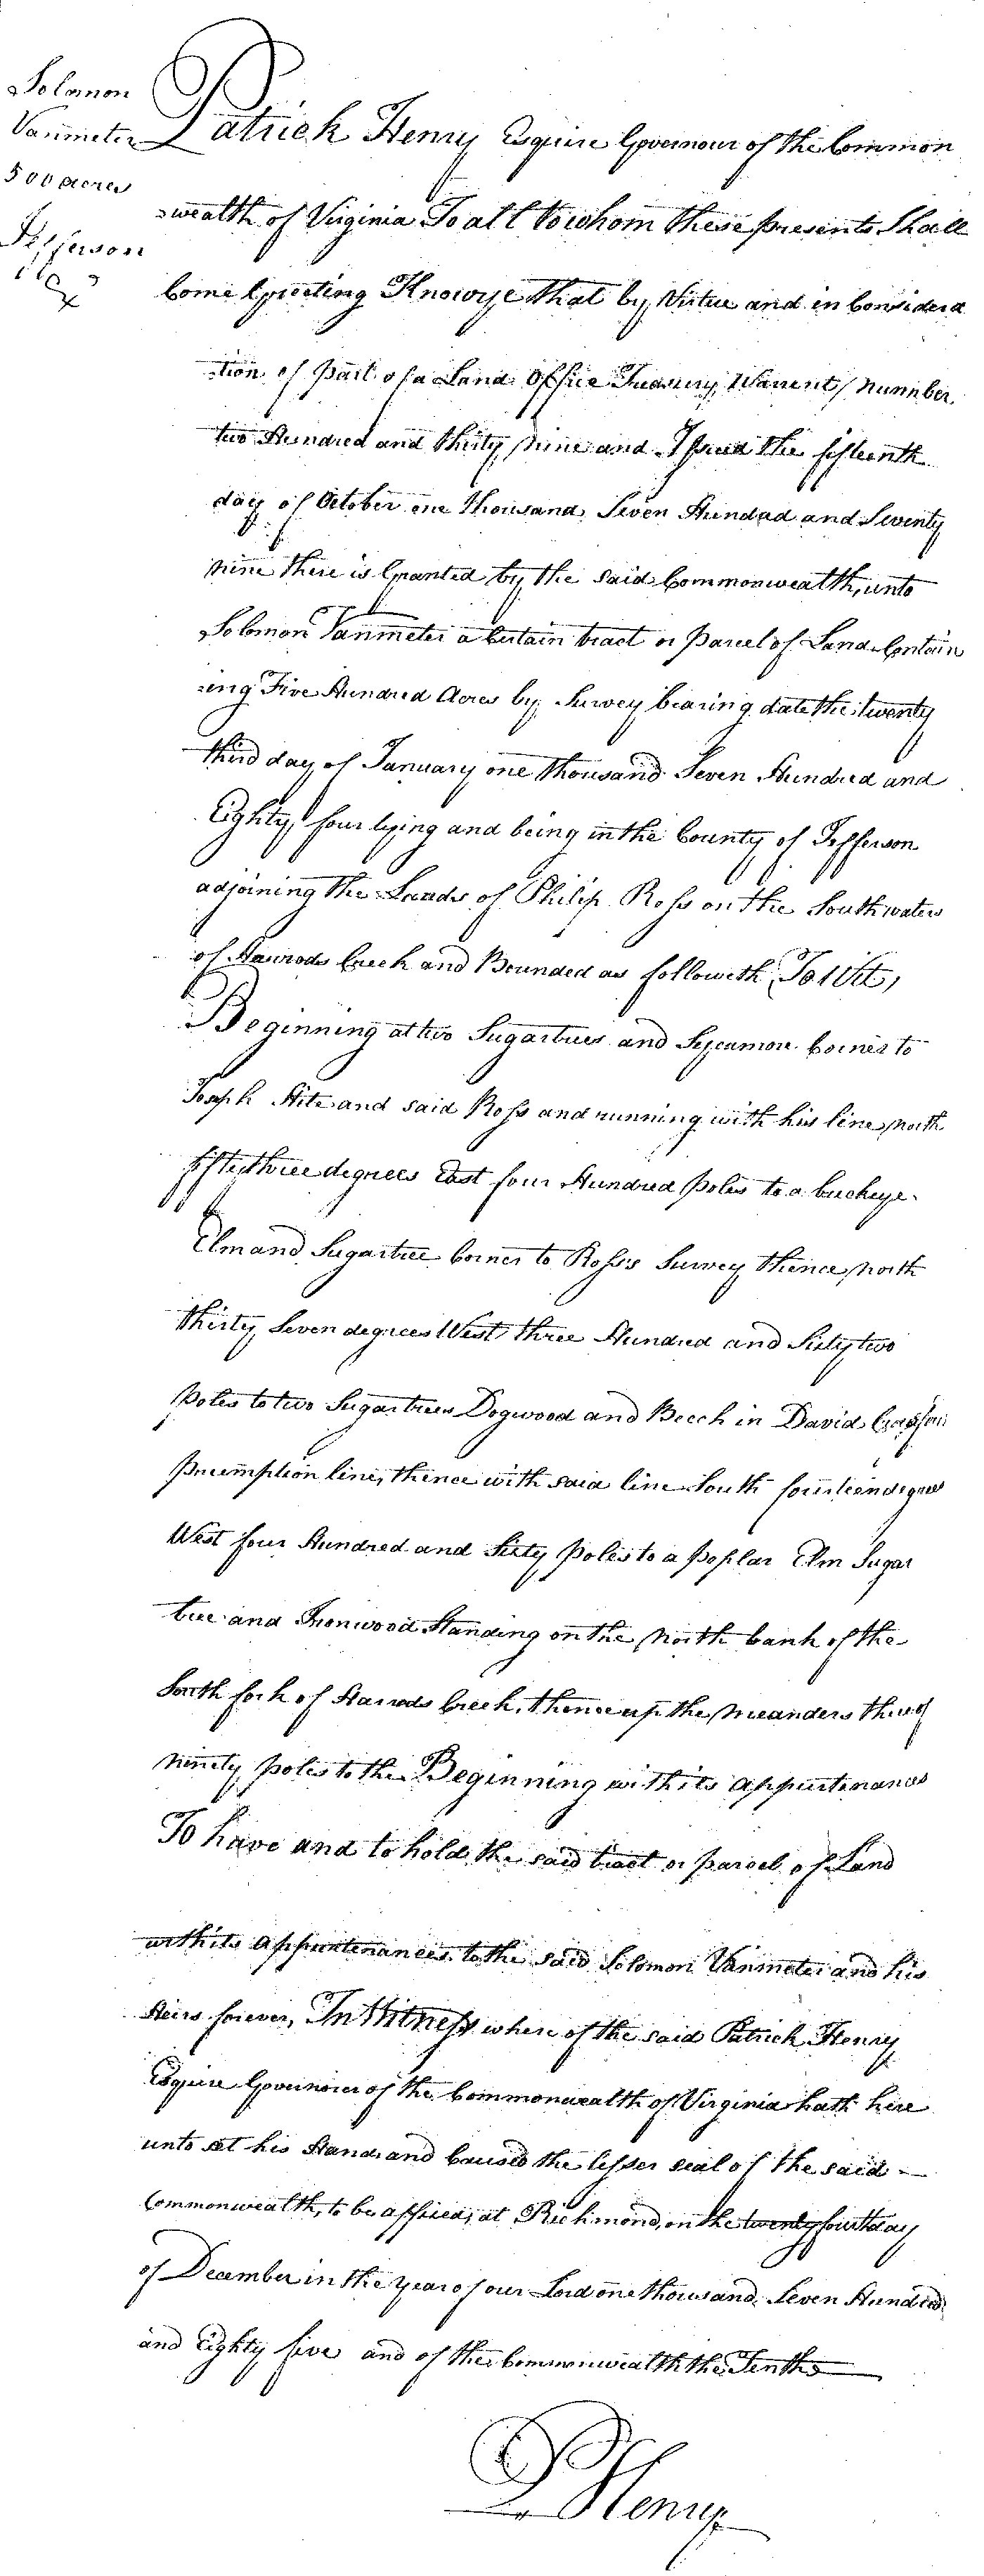 Solomon
Vanmeter
500 acres
Jefferson
Patrick Henry Esquire Governour of the Common
wealth of Virginia To all to whom these presents Shall
Come Greeting Know ye that by Virtue and in Considera
tion of part of a Land Office Treasury Warrent Number
two Hundred and thirty nine and Issued the fifteenth
day of October one thousand Seven Hundad and Seventy
nine there is Granted by the said Commonwealth, unto
Solomon Vanmeter a Certain tract or parcel of Land Contain
ing Five Hundred Acres by Survey bearing date the twenty
third day of January one thousand Seven Hundred and
Eighty four lying and being in the County of Jefferson
adjoining the Lands of Philip Ross on the South waters
of Harrods Creek and Bounded as followeth, To Wit,
Beginning at two Sugartrees and Sycamore Corner to
Joseph Hite and said Ross and running with his line north
fifty three degrees East four Hundred poles to a buckeye
Elm and Sugartree Corner to Ross's Survey thence north
thirty Seven degrees West three Hundred and Sixty two
poles to two Sugartrees Dogwood and Beech in David
Preemption line, thence with said line South fourteen degrees
West four Hundred and Sixty poles to a poplar Elm Sugar
tree and Ironwood Standing on the North bank of the
South fork of Harrods Creek, thence up the meanders thereof
ninety poles to the Beginning with its appurtenances
To have and to hold the said tract or parcel of Land
with its appurtenances to the said Solomon Vanmeter and his
Heirs forever, In Witness where of the said Patrick Henry
Esquire Governour of the Commonwealth of Virginia hath here
unto set his Hand and Caused the lesser seal of the said
Commonwealth, to be affixed, at Richmond, on the twenty fourth day
of December in the year of our Lord one thousand Seven Hundred
and Eighty five and of the Commonwealth the Tenth
P Henry